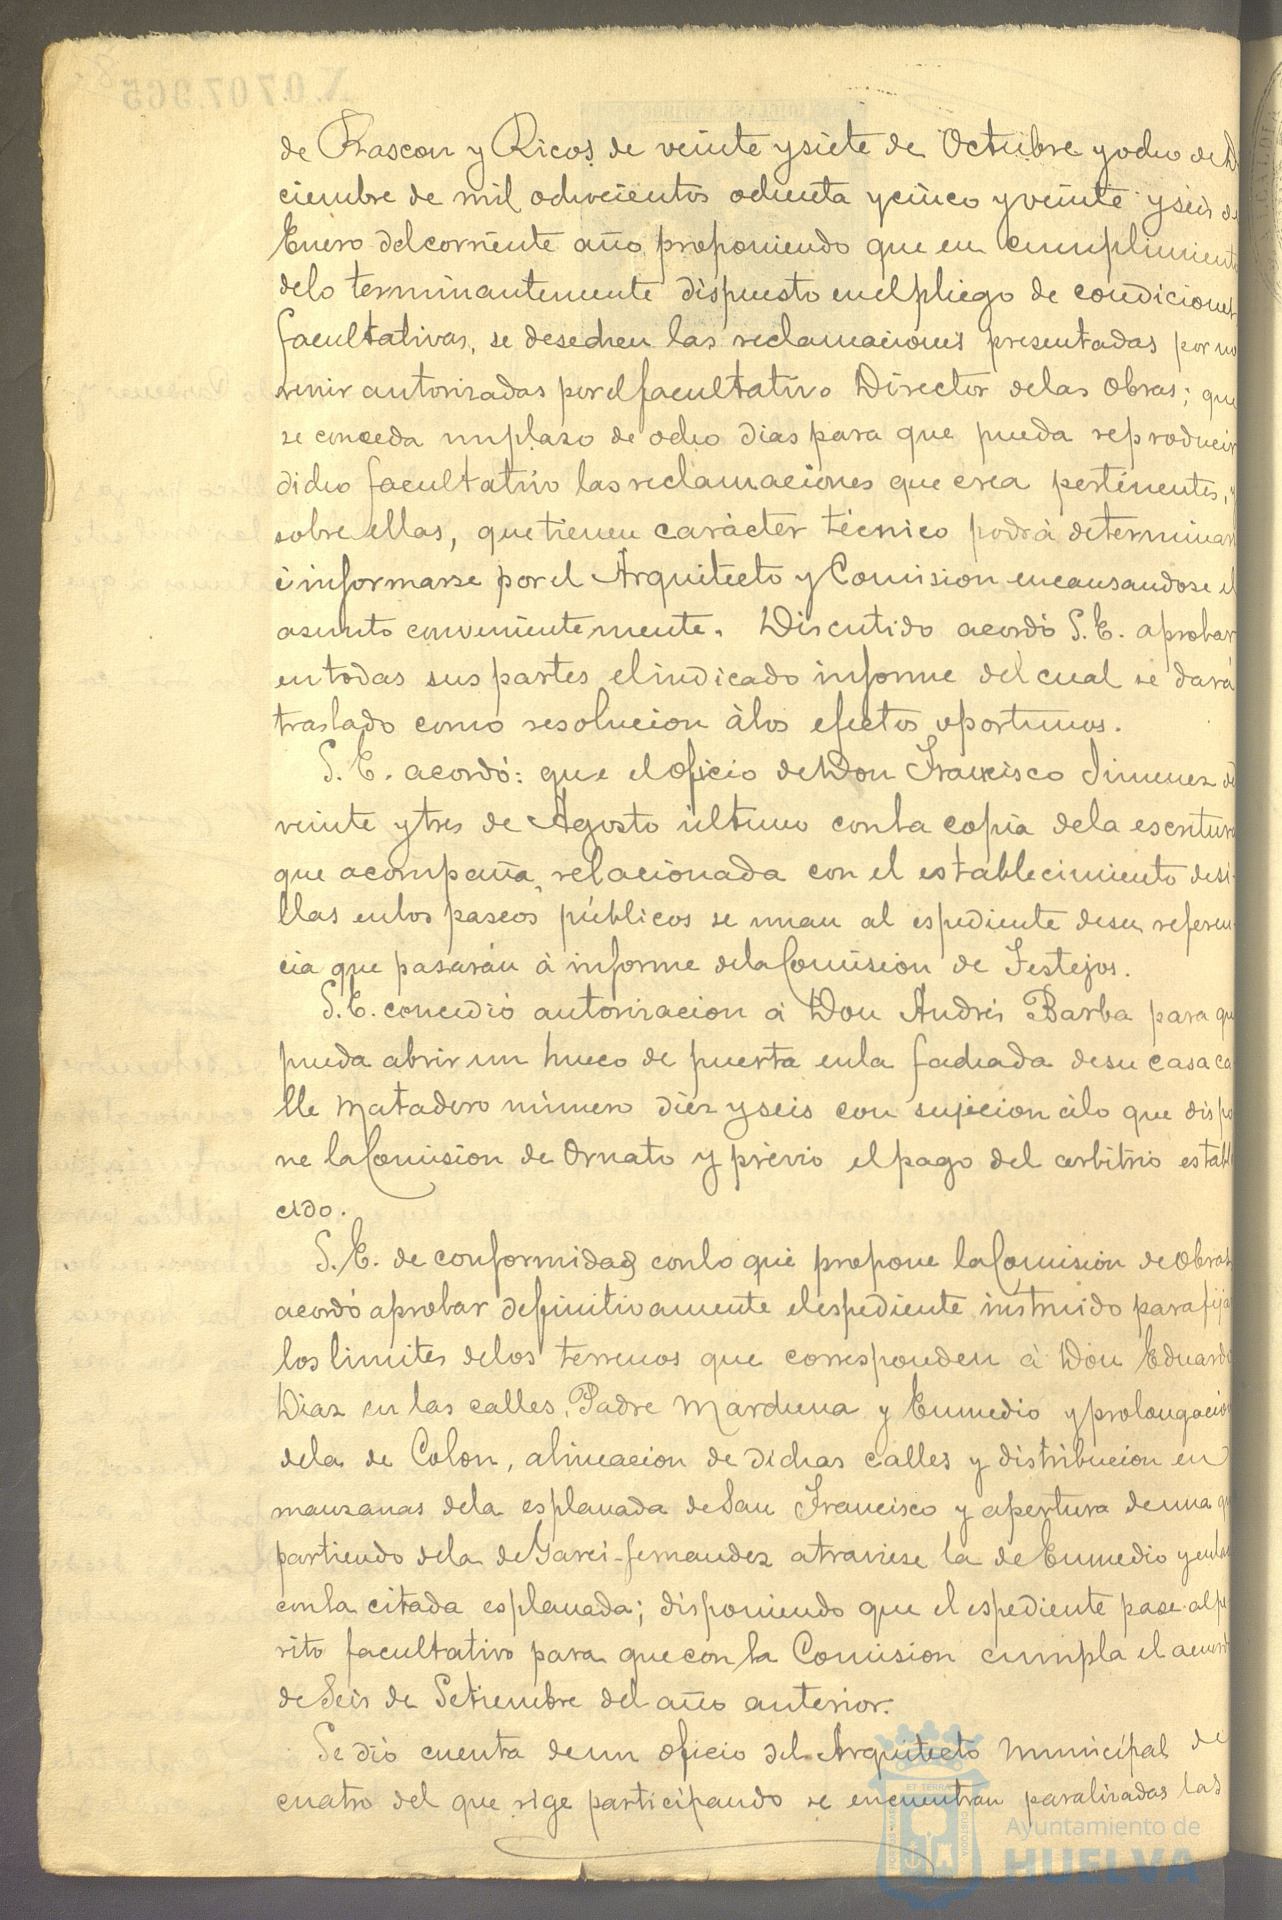 de Rascon y Ricos de veinte y siete de Octubre y ocho de Di
ciembre de mil ochocientos ochenta y cinco y veinte y seis de
Enero del corriente año proponiendo que en cumplimiento
de lo terminantemente dispuesto en el pliego de condiciones
facultativas, se desechen las reclamaciones presentadas por no
venir autorizadas por el facultativo Director de las obras; que
se conceda un plazo de ocho dias para que pueda reproducir
dicho facultativo las reclamaciones que crea pertinentes, y
sobre ellas, que tienen carácter técnico podrá determinar
é informarse por el Arquitecto y Comision encausandose el
asunto convenientemente. Discutido acordó S.E. aprobar
en todas sus partes el indicado informe del cual se dará
traslado como resolucion á los efectos oportunos.
S.E. acordó: que el oficio de Don Francisco Jimenez de
veinte y tres de Agosto último con la copia de la escritura
que acompaña, relacionada con el establecimiento de si-
llas en los paseos públicos se unan al espediente de su referen-
cia que pasarán á informe de la Comision de Festejos.
S.E. concedió autorizacion á Don Andrés Barba para que
pueda abrir un hueco de puerta en la fachada de su casa ca
lle Matadero número diez y seis con sujecion á lo que dispo
ne la Comision de Ornato y prévio el pago del arbitrio estable
cido.
S.E. de conformidad con lo que propone la Comision de Obras
acordó aprobar definitivamente el espediente instruido para fijar
los limites de los terrenos que corresponden á Don Eduardo
Diaz en las calles, Padre Marchena y Enmedio y prolongacion
de la de Colon, alineacion de dichas calles y distribucion en
manzanas de la esplanada de San Francisco y apertura de una que
partiendo de la de Garci-fernandez atraviese la de Enmedio y enlace
con la citada esplanada; disponiendo que el espediente pase al pe
rito facultativo para que con la Comision cumpla el acuerdo
de Seis de Setiembre del año anterior.
Se dió cuenta de un oficio del Arquitecto Municipal de
cuatro del que rige participando se encuentran paralizadas las
Ayuntamiento de
HUELVA